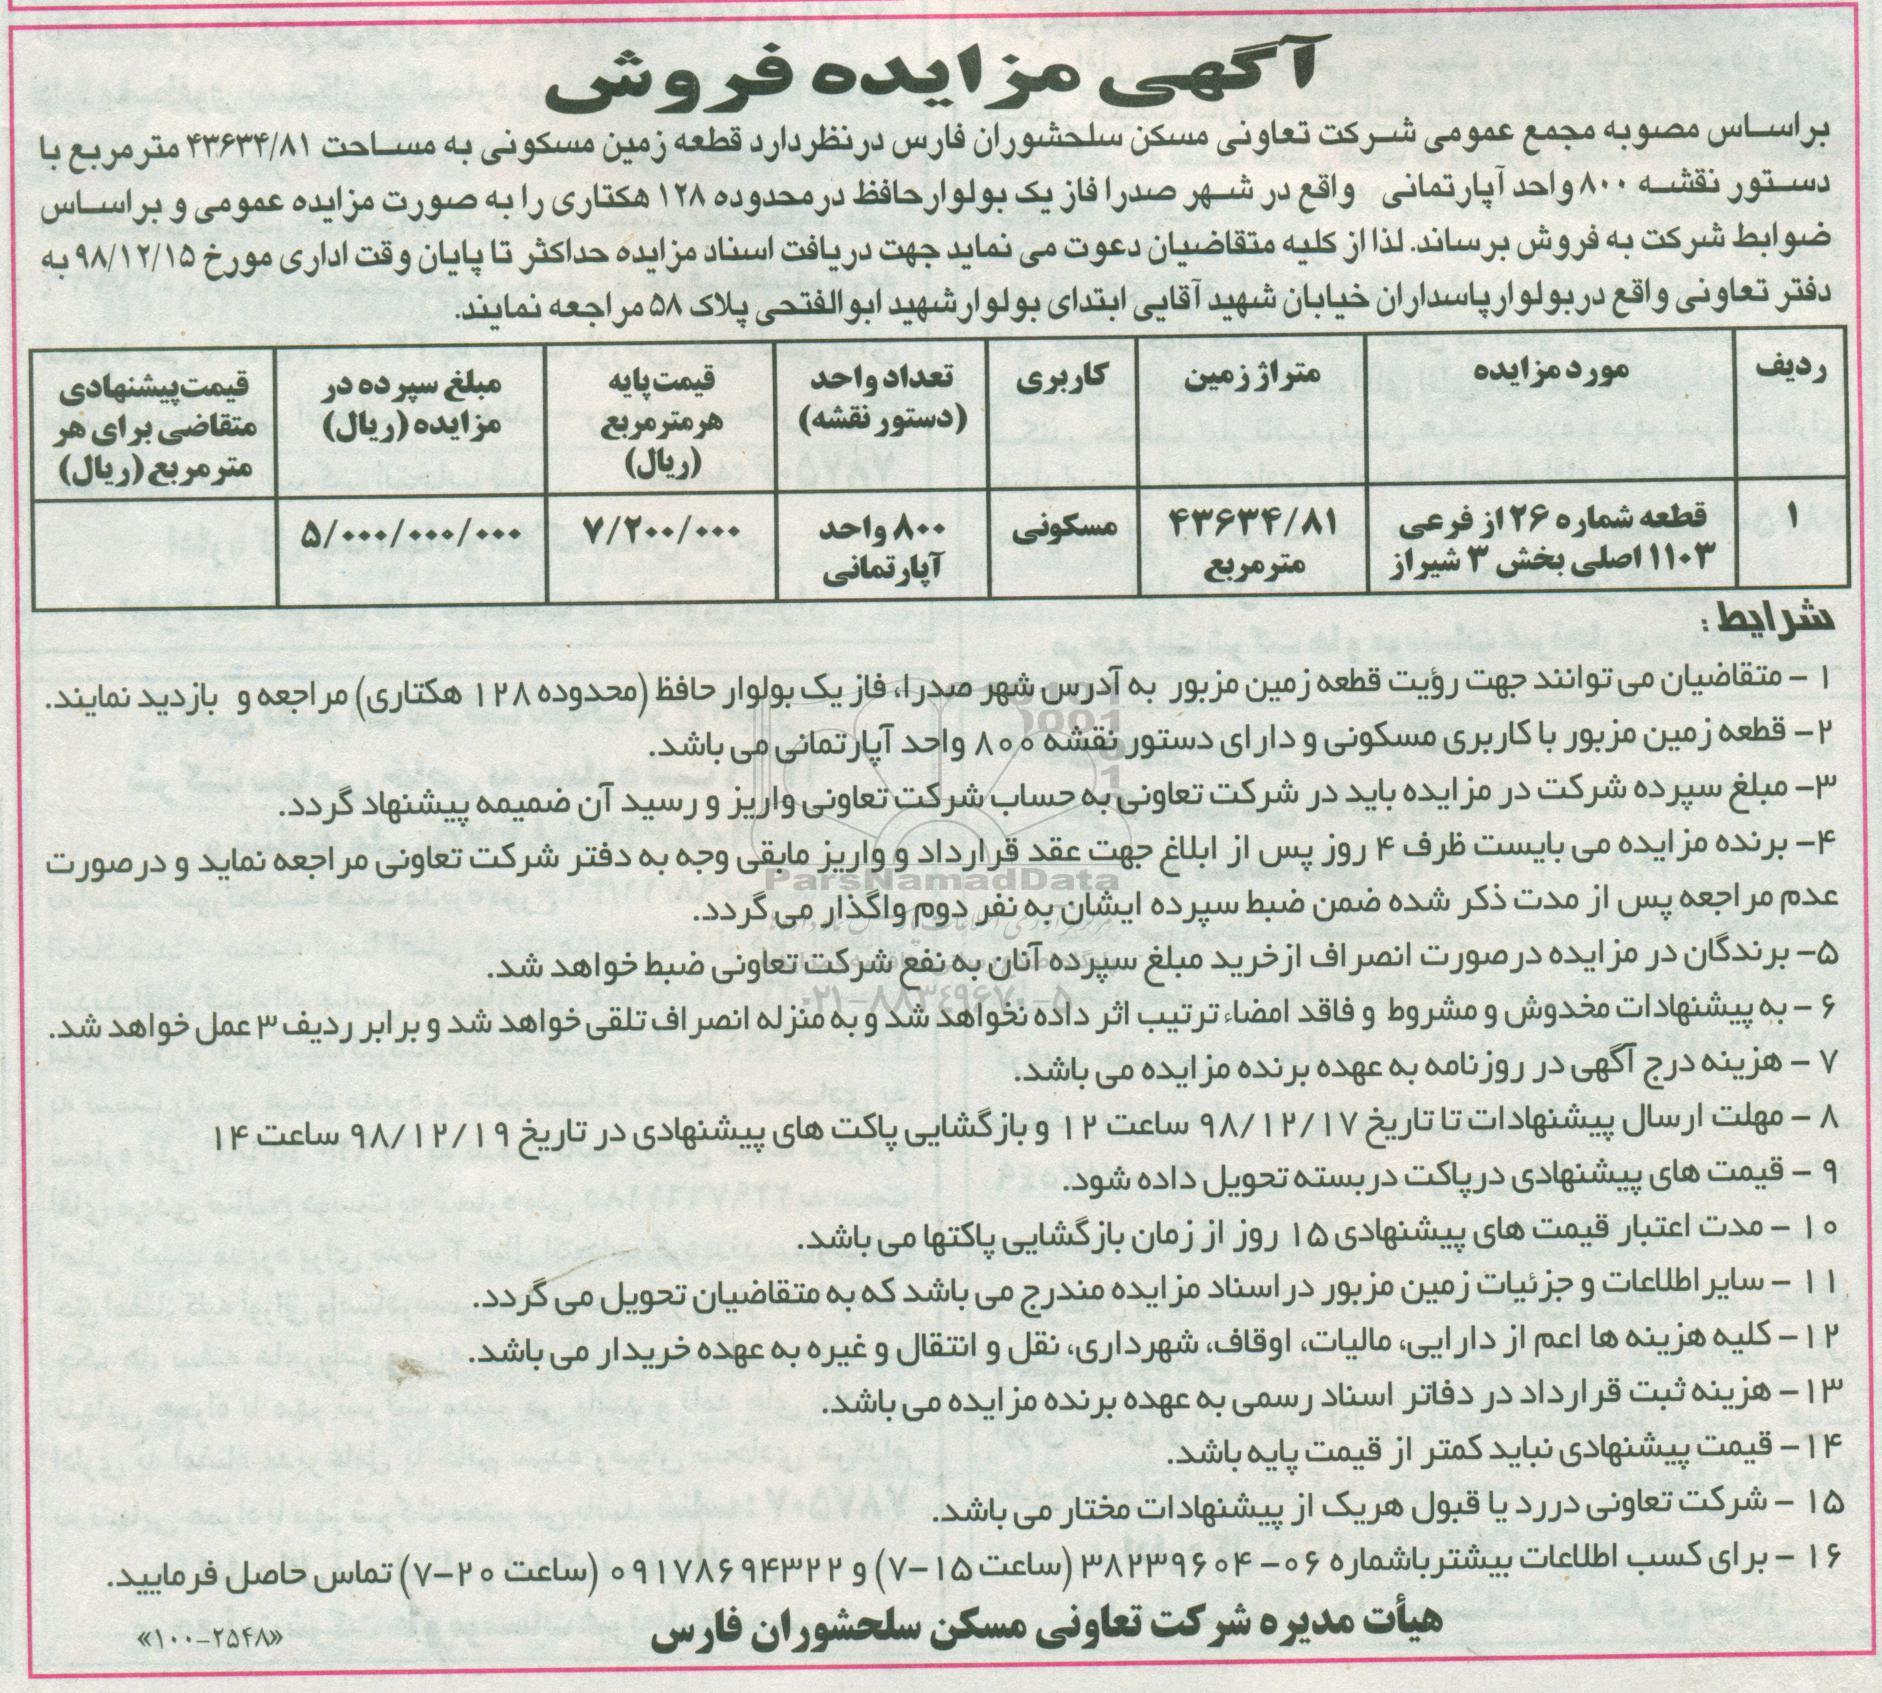 آگهی مزایده فروش
براساس مصوبه مجمع عمومی شرکت تعاونی مسکن سلحشوران فارس درنظردارد قطعه زمین مسکونی به مساحت ۴۳۶۳۴/۸۱ مترمربع با
دستور نقشه ۸۰۰ واحد آپارتمانی واقع در شهر صدرا فاز یک بولوارحافظ درمحدوده ۱۲۸ هکتاری را به صورت مزایده عمومی و براساس
ضوابط شرکت به فروش برساند. لذا از کلیه متقاضیان دعوت می نماید جهت دریافت اسناد مزایده حداکثر تا پایان وقت اداری مورخ ۹۸/۱۲/۱۵ به
دفتر تعاونی واقع دربولوارپاسداران خیابان شهید آقایی ابتدای بولوارشهید ابوالفتحی پلاک ۵۸ مراجعه نمایند.
ردیف | مورد مزایده | متراژ زمین | کاربری | تعداد واحد (دستور نقشه) | قیمت پایه هرمترمربع (ریال) | مبلغ سپرده در مزایده (ریال) | قیمت پیشنهادی متقاضی برای هر مترمربع (ریال)
۱ | قطعه شماره ۲۶ از فرعی ۱۱۰۳ اصلی بخش ۳ شیراز | ۴۳۶۳۴/۸۱ مترمربع | مسکونی | ۸۰۰ واحد آپارتمانی | ۷/۲۰۰/۰۰۰ | ۵/۰۰۰/۰۰۰/۰۰۰
شرایط :
۱ – متقاضیان می توانند جهت رؤیت قطعه زمین مزبور به آدرس شهر صدرا، فاز یک بولوار حافظ (محدوده ۱۲۸ هکتاری) مراجعه و بازدید نمایند.
۲– قطعه زمین مزبور با کاربری مسکونی و دارای دستور نقشه ۸۰۰ واحد آپارتمانی می باشد.
۳– مبلغ سپرده شرکت در مزایده باید در شرکت تعاونی به حساب شرکت تعاونی واریز و رسید آن ضمیمه پیشنهاد گردد.
۴– برنده مزایده می بایست ظرف ۴ روز پس از ابلاغ جهت عقد قرارداد و واریز مابقی وجه به دفتر شرکت تعاونی مراجعه نماید و درصورت
عدم مراجعه پس از مدت ذکر شده ضمن ضبط سپرده ایشان به نفر دوم واگذار می گردد.
۵– برندگان در مزایده درصورت انصراف ازخرید مبلغ سپرده آنان به نفع شرکت تعاونی ضبط خواهد شد.
۶ – به پیشنهادات مخدوش و مشروط و فاقد امضاء ترتیب اثر داده نخواهد شد و به منزله انصراف تلقی خواهد شد و برابر ردیف ۳ عمل خواهد شد.
۷ – هزینه درج آگهی در روزنامه به عهده برنده مزایده می باشد.
۸ – مهلت ارسال پیشنهادات تا تاریخ ۹۸/۱۲/۱۷ ساعت ۱۲ و بازگشایی پاکت های پیشنهادی در تاریخ ۹۸/۱۲/۱۹ ساعت ۱۴
۹ – قیمت های پیشنهادی درپاکت دربسته تحویل داده شود.
۱۰ – مدت اعتبار قیمت های پیشنهادی ۱۵ روز از زمان بازگشایی پاکتها می باشد.
۱۱ – سایراطلاعات و جزئیات زمین مزبور در اسناد مزایده مندرج می باشد که به متقاضیان تحویل می گردد.
۱۲– کلیه هزینه ها اعم از دارایی، مالیات، اوقاف، شهرداری، نقل و انتقال و غیره به عهده خریدار می باشد.
۱۳– هزینه ثبت قرارداد در دفاتر اسناد رسمی به عهده برنده مزایده می باشد.
۱۴– قیمت پیشنهادی نباید کمتر از قیمت پایه باشد.
۱۵ – شرکت تعاونی دررد یا قبول هریک از پیشنهادات مختار می باشد.
۱۶ – برای کسب اطلاعات بیشترباشماره ۰۶- ۳۸۲۳۹۶۰۴ (ساعت ۱۵–۷) و ۰۹۱۷۸۶۹۴۳۲۲ (ساعت ۲۰–۷) تماس حاصل فرمایید.
هیأت مدیره شرکت تعاونی مسکن سلحشوران فارس
«۱۰۰-۲۵۴۸»
ParsNamadData
۰۲۱-۸۸۳۴۹۶۷۰-۵